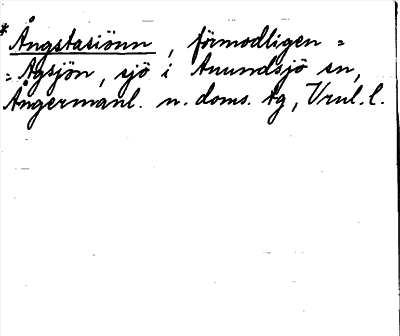 *Ångstasiönn, förmodligen =
= Ågsjön, sjö i Anundsjö sn,
Ångermanl. n. doms. tg, Vrnl. l.